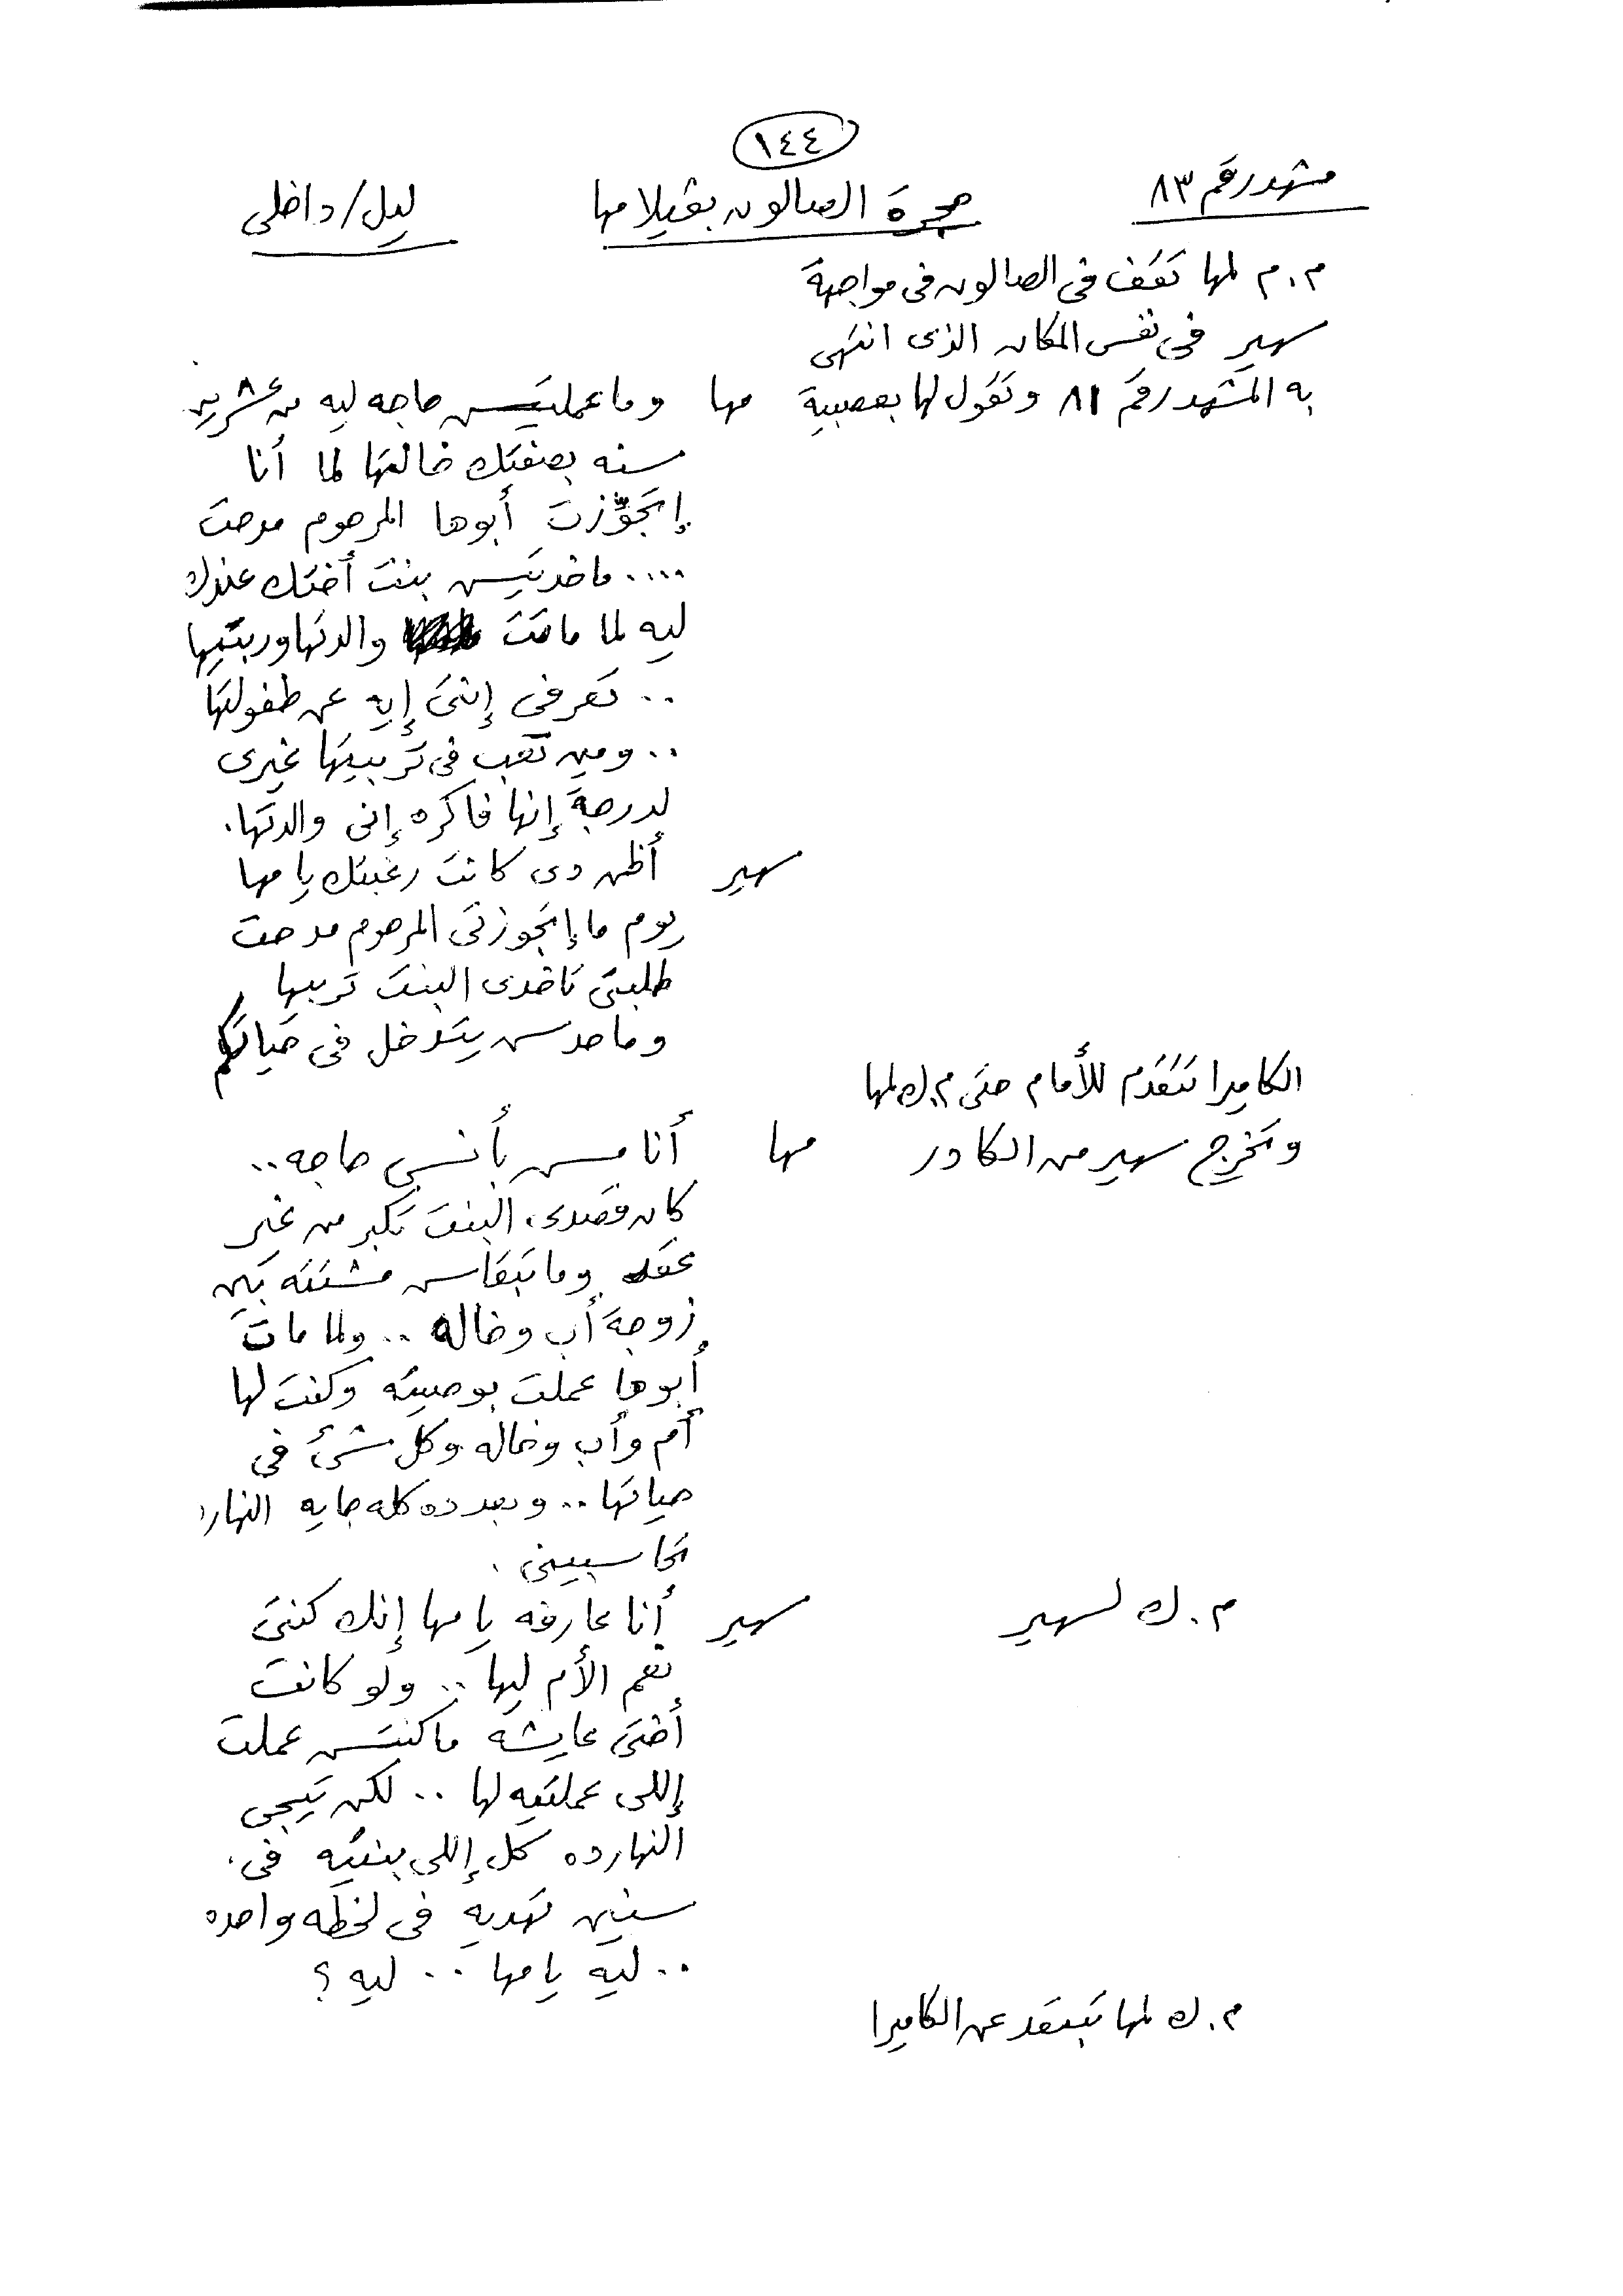 ١٤٤
مشهد رقم ٨٣ حجرة الصالون بفيلا مها ليل/داخلى
م.م لمها تقف فى الصالون فى مواجهة
سهير فى نفس المكان الذى انتهى
به المشهد رقم ٨١ وتقول لها بعصبية مها وماعملتيش حاجه ليه من عشرين
سنه بصفتك خالتها لما أنا
إتجوّزت أبوها المرحوم مدحت
.... ماخدتيش بنت أختك عندك
ليه لما ماتت والدتها وربتيها
.. تعرفى إنتى إيه عن طفولتها
.. ومين تعب فى تربيتها غيرى
لدرجة إنها فاكره إنى والدتها.
سهير أظن دى كانت رغبتك يا مها
يوم ما إتجوزتى المرحوم مدحت
طلبتى تاخدى البنت تربيها
وماحدش يتدخل فى حياتكم
الكاميرا تتقدم للأمام حتى م.ك لمها
وتخرج سهير من الكادر مها أنا مش بأنسى حاجه..
كان قصدى، البنت تكبر من غير
عقد وماتبقاش مشتته بين
زوجة أب وخاله .. ولما مات
أبوها عملت بوصيته وكنت لها
أم وأب وخاله وكل شئ فى
حياتها .. وبعد ده كله جايه النهارده
تحاسبينى.
م.ك لسهير سهير أنا عارفه يا مها إنك كنتى
نعم الأم ليها .. ولو كانت
أختى عايشه ماكنتش عملت
إللى عملتيه لها .. لكن تيجى
النهارده كل إللى بنتيه فى
سنين تهديه فى لحظه واحده
.. ليه يا مها .. ليه ؟
م.ك لمها تبتعد عن الكاميرا